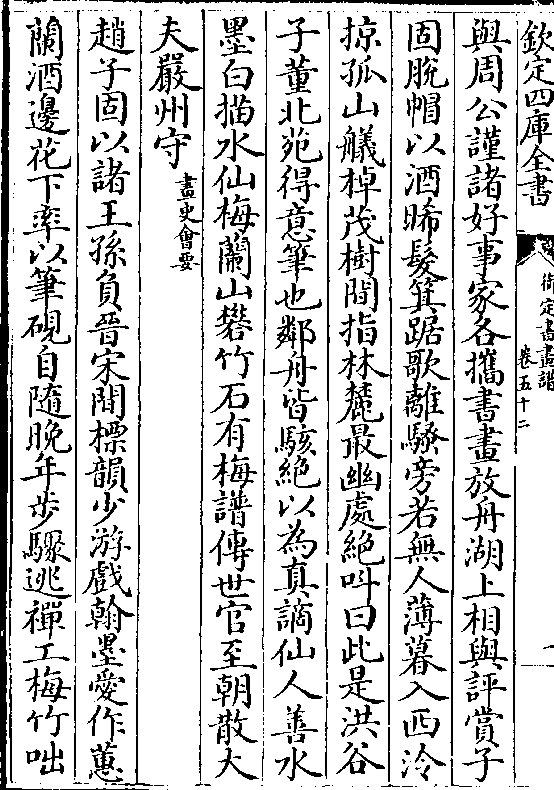 欽定四庫全書
御定書畫譜
卷五十二
與周公謹諸好事家各攜書畫放舟湖上相與評賞子
固脫帽以酒晞髮箕踞歌離騷旁若無人薄暮入西泠
掠孤山艤棹茂樹間指林麓最幽處絶叫曰此是洪谷
子董北苑得意筆也鄰舟皆駭絶以為真謫仙人善水
墨白描水仙梅蘭山礬竹石有梅譜傳世官至朝散大
夫嚴州守畫史會要
趙子固以諸王孫負晉宋間標韻少游戲翰墨愛作蕙
蘭酒邊花下率以筆硯自隨晚年步驟逃禪工梅竹咄